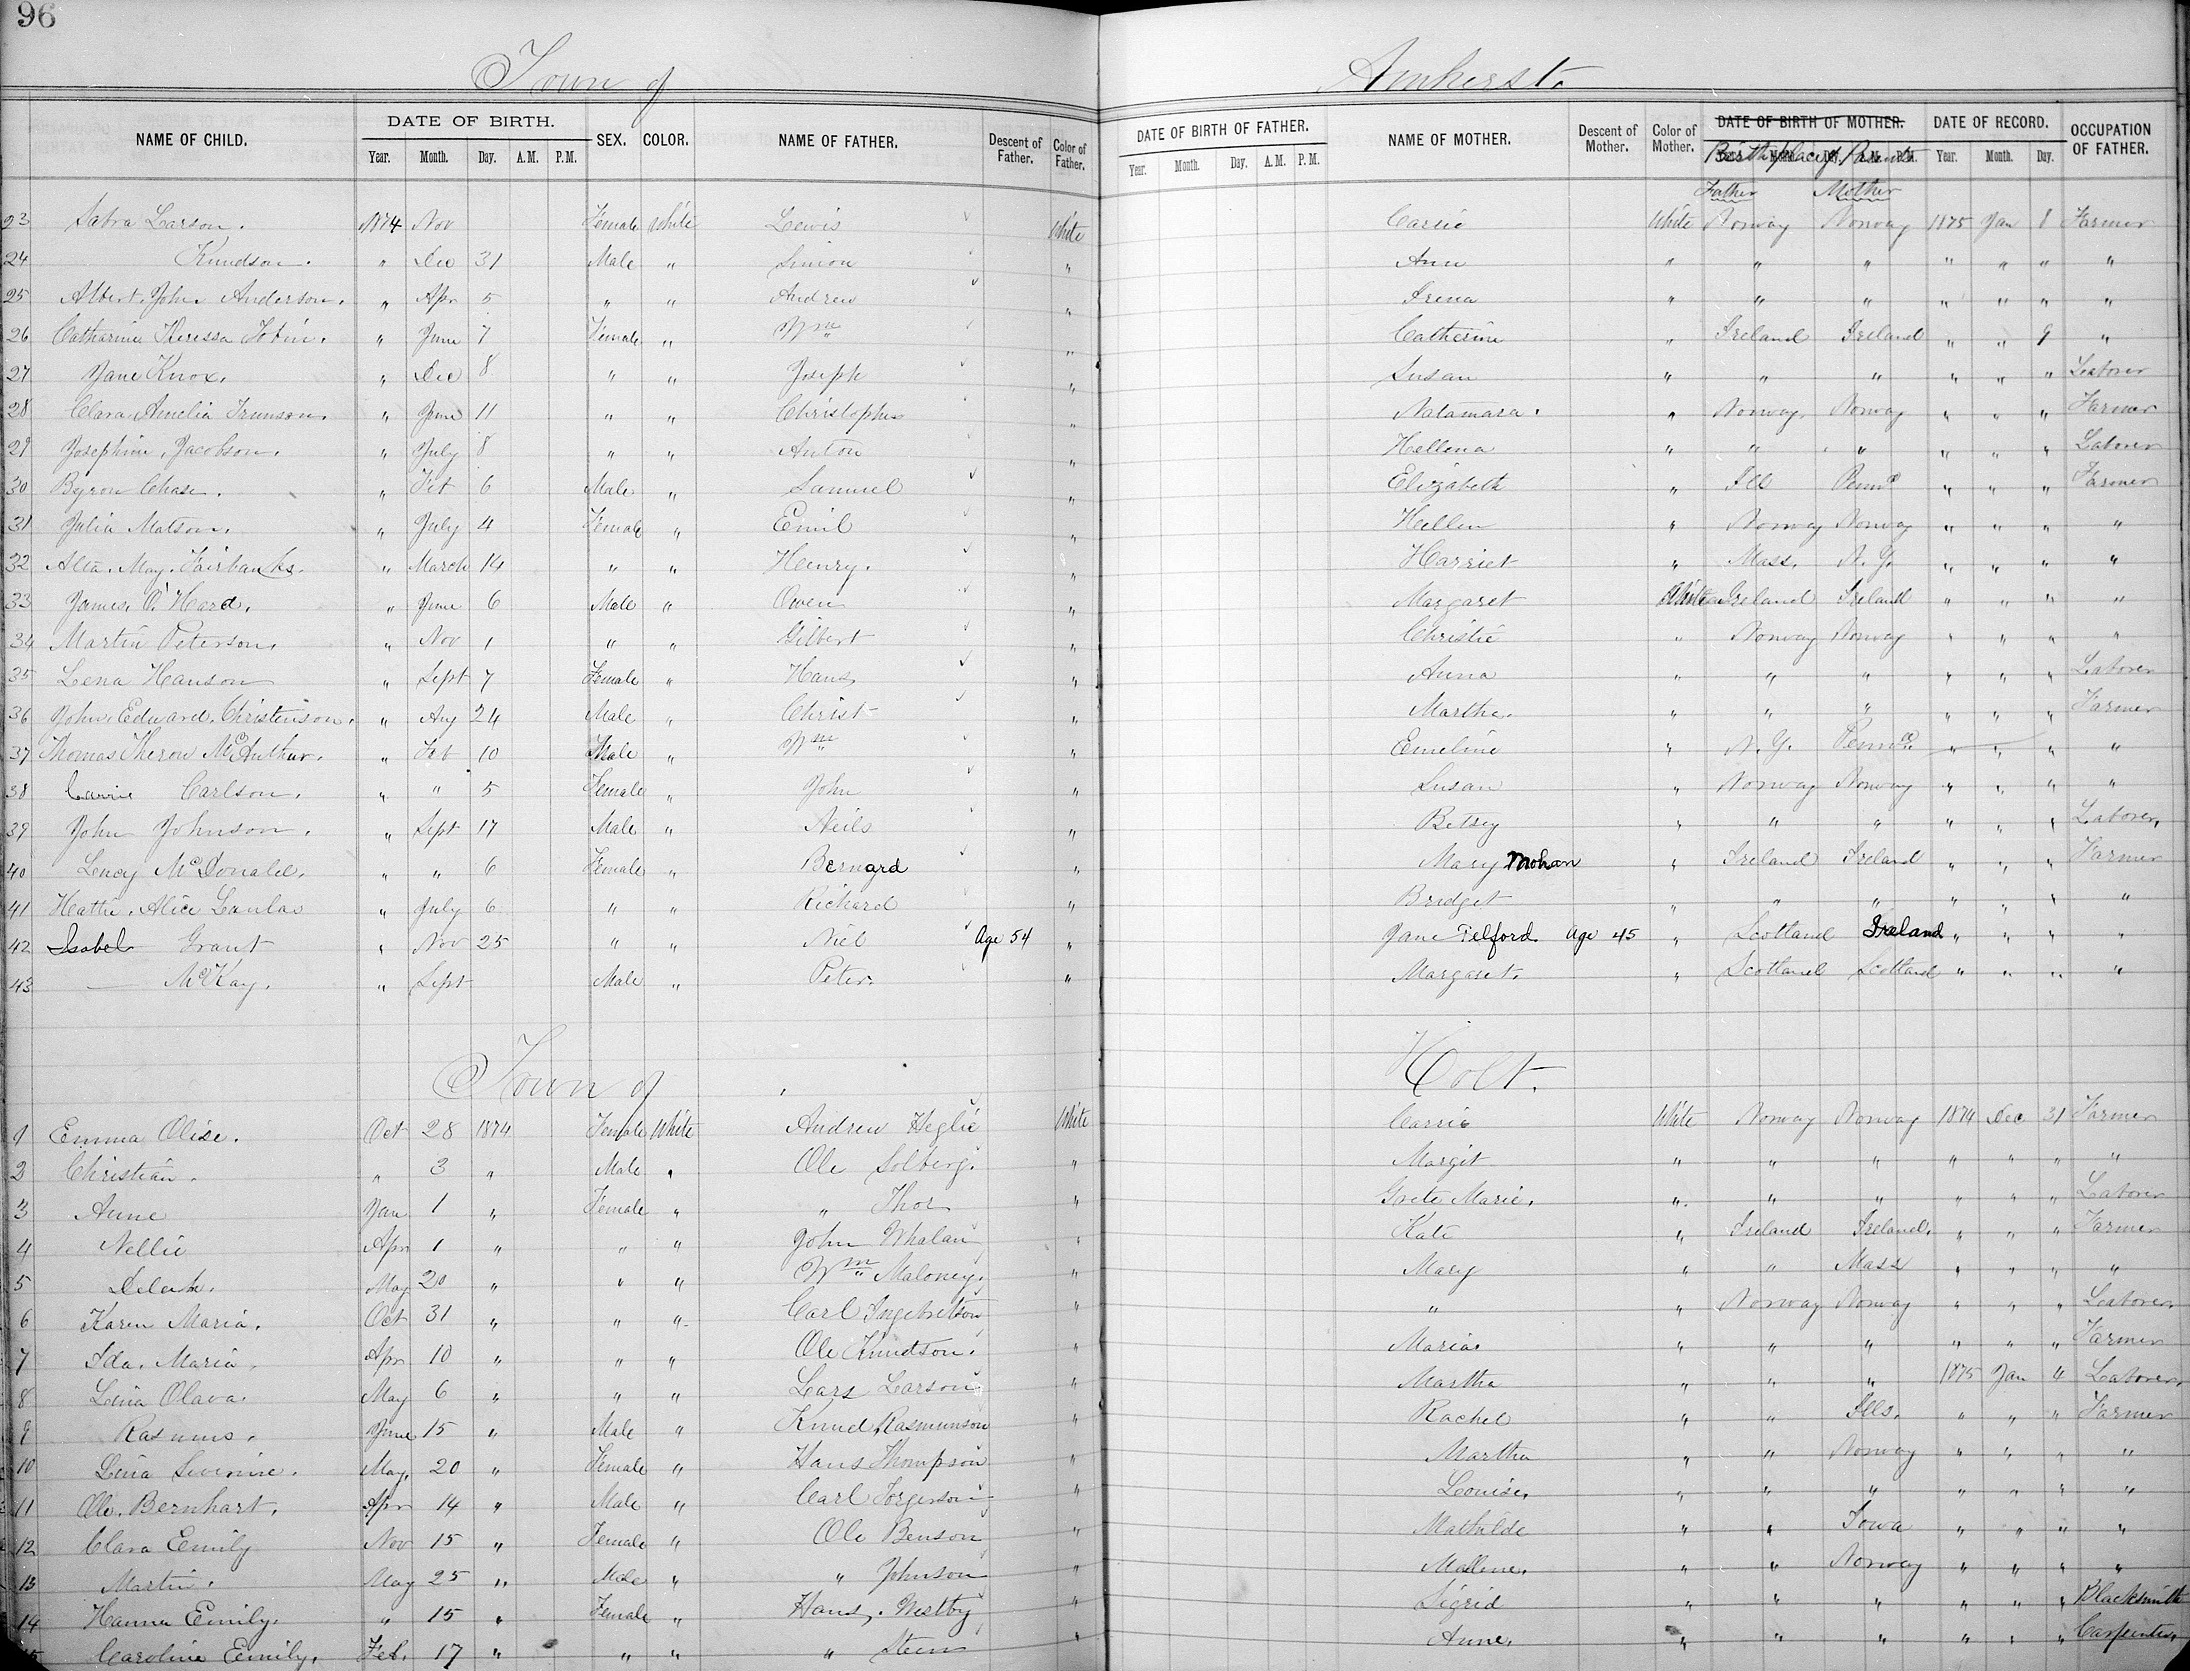 96
Town of Amherst.
NAME OF CHILD. DATE OF BIRTH. SEX. COLOR. NAME OF FATHER. Descent of Father. Color of Father. DATE OF BIRTH OF FATHER. NAME OF MOTHER. Descent of Mother. Color of Mother. DATE OF BIRTH OF MOTHER. DATE OF RECORD. OCCUPATION OF FATHER.
Year. Month. Day. A.M. P.M. Year. Month. Day. A.M. P.M. Birthplace of Parents Year. Month. Day.
Father Mother
23 Larson. 1874 Nov Female White Lewis White Carrie White Norway Norway 1875 Jan 8 Farmer
24 Knudson. " Dec 31 Male " Simion " Ann " " " " " " "
25 Albert John Anderson. " Apr 5 " " Andrew " Irena " " " " " " "
26 Catharine Theressa Tobin. " June 7 Female " Wm " Catherine " Ireland Ireland " " 9 "
27 Jane Knox. " Dec 8 " " Joseph " Susan " " " " " " Laborer
28 Clara Amelia " June 11 " " Christopher " " Norway. Norway " " " Farmer
29 Josephine Jacobson. " July 8 " " Anton " Hellena " " " " " " Laborer
30 Byron Chase. " Feb 6 Male " Samuel " Elizabeth " Ills Penna " " " Farmer
31 Julia Matson. " July 4 Female " Emil " Hellen " Norway Norway " " " "
32 Alta May Fairbanks. " March 14 " " Henry. " Harriet " Mass. N.Y. " " " "
33 James O'Hard. " June 6 Male " Owen " Margaret White Ireland Ireland " " " "
34 Martin Peterson. " Nov 1 " " Gilbert " Christie " Norway Norway " " " "
35 Lena Hanson " Sept 7 Female " Hans " Anna " " " " " " Laborer
36 John Edward Christenson. " Aug 24 Male " Christ " Martha. " " " " " " Farmer
37 Thomas Theron McArthur. " Feb 10 Male " Wm " Emeline " N.Y. Penna. " " " "
38 Carrie Carlson. " " 5 Female " John " Susan " Norway Norway " " " "
39 John Johnson. " Sept 17 Male " Neils " Betsy " " " " " " Laborer.
40 Lucy McDonald. " " 6 Female " Bernard " Mary Mohan " Ireland Ireland " " " Farmer
41 Hattie Alice " July 6 " " Richard " Bridget " " " " " " "
42 Isabel Grant " Nov 25 " " Niel Age 54 " Jane Telford. Age 45 " Scotland Ireland " " " "
43 — McKay. " Sept Male " Peter. " Margaret. " Scotland Scotland " " " "
Town of Holt.
1 Emma Olise. Oct 28 1874 Female White Andrew Heglie White Carrie White Norway Norway 1874 Dec 31 Farmer
2 Christian. " 3 " Male " Ole Solberg. " Margit " " " " " " "
3 Anne Jan 1 " Female " " Thor " Grete Marie. " " " " " " Laborer
4 Nellie Apr 1 " " " John Whalan " Kate " Ireland Ireland. " " " Farmer
5 May 20 " " " Wm Maloney. " Mary " " Mass " " " "
6 Karen Maria. Oct 31 " " " Carl Ingebretson " " " Norway Norway " " " Laborer.
7 Ida Maria. Apr 10 " " " Ole Knudtson. " Maria. " " " " " " Farmer
8 Lina Olava. May 6 " " " Lars Larson " Martha " " " 1875 Jan 4 Laborer.
9 Rasmus. June 15 " Male " Knud Rasmunson " Rachel " " Ills. " " " Farmer
10 Lina Severine. May. 20 " Female " Hans Thompson " Martha " " Norway " " " "
11 Ole Bernhart. Apr 14 " Male " Carl Torgerson " Louise. " " " " " " "
12 Clara Emily Nov 15 " Female " Ole Benson " Mathilde " " Iowa " " " "
13 Martin. May 25 " Male " " Johnson " Mallene. " " Norway " " " "
14 Hanna Emily. " 15 " Female " Hans. Westby " Sigrid " " " " " " Blacksmith
15 Caroline Emily. Feb. 17 " " " " Steen " Anne. " " " " " " Carpenter.